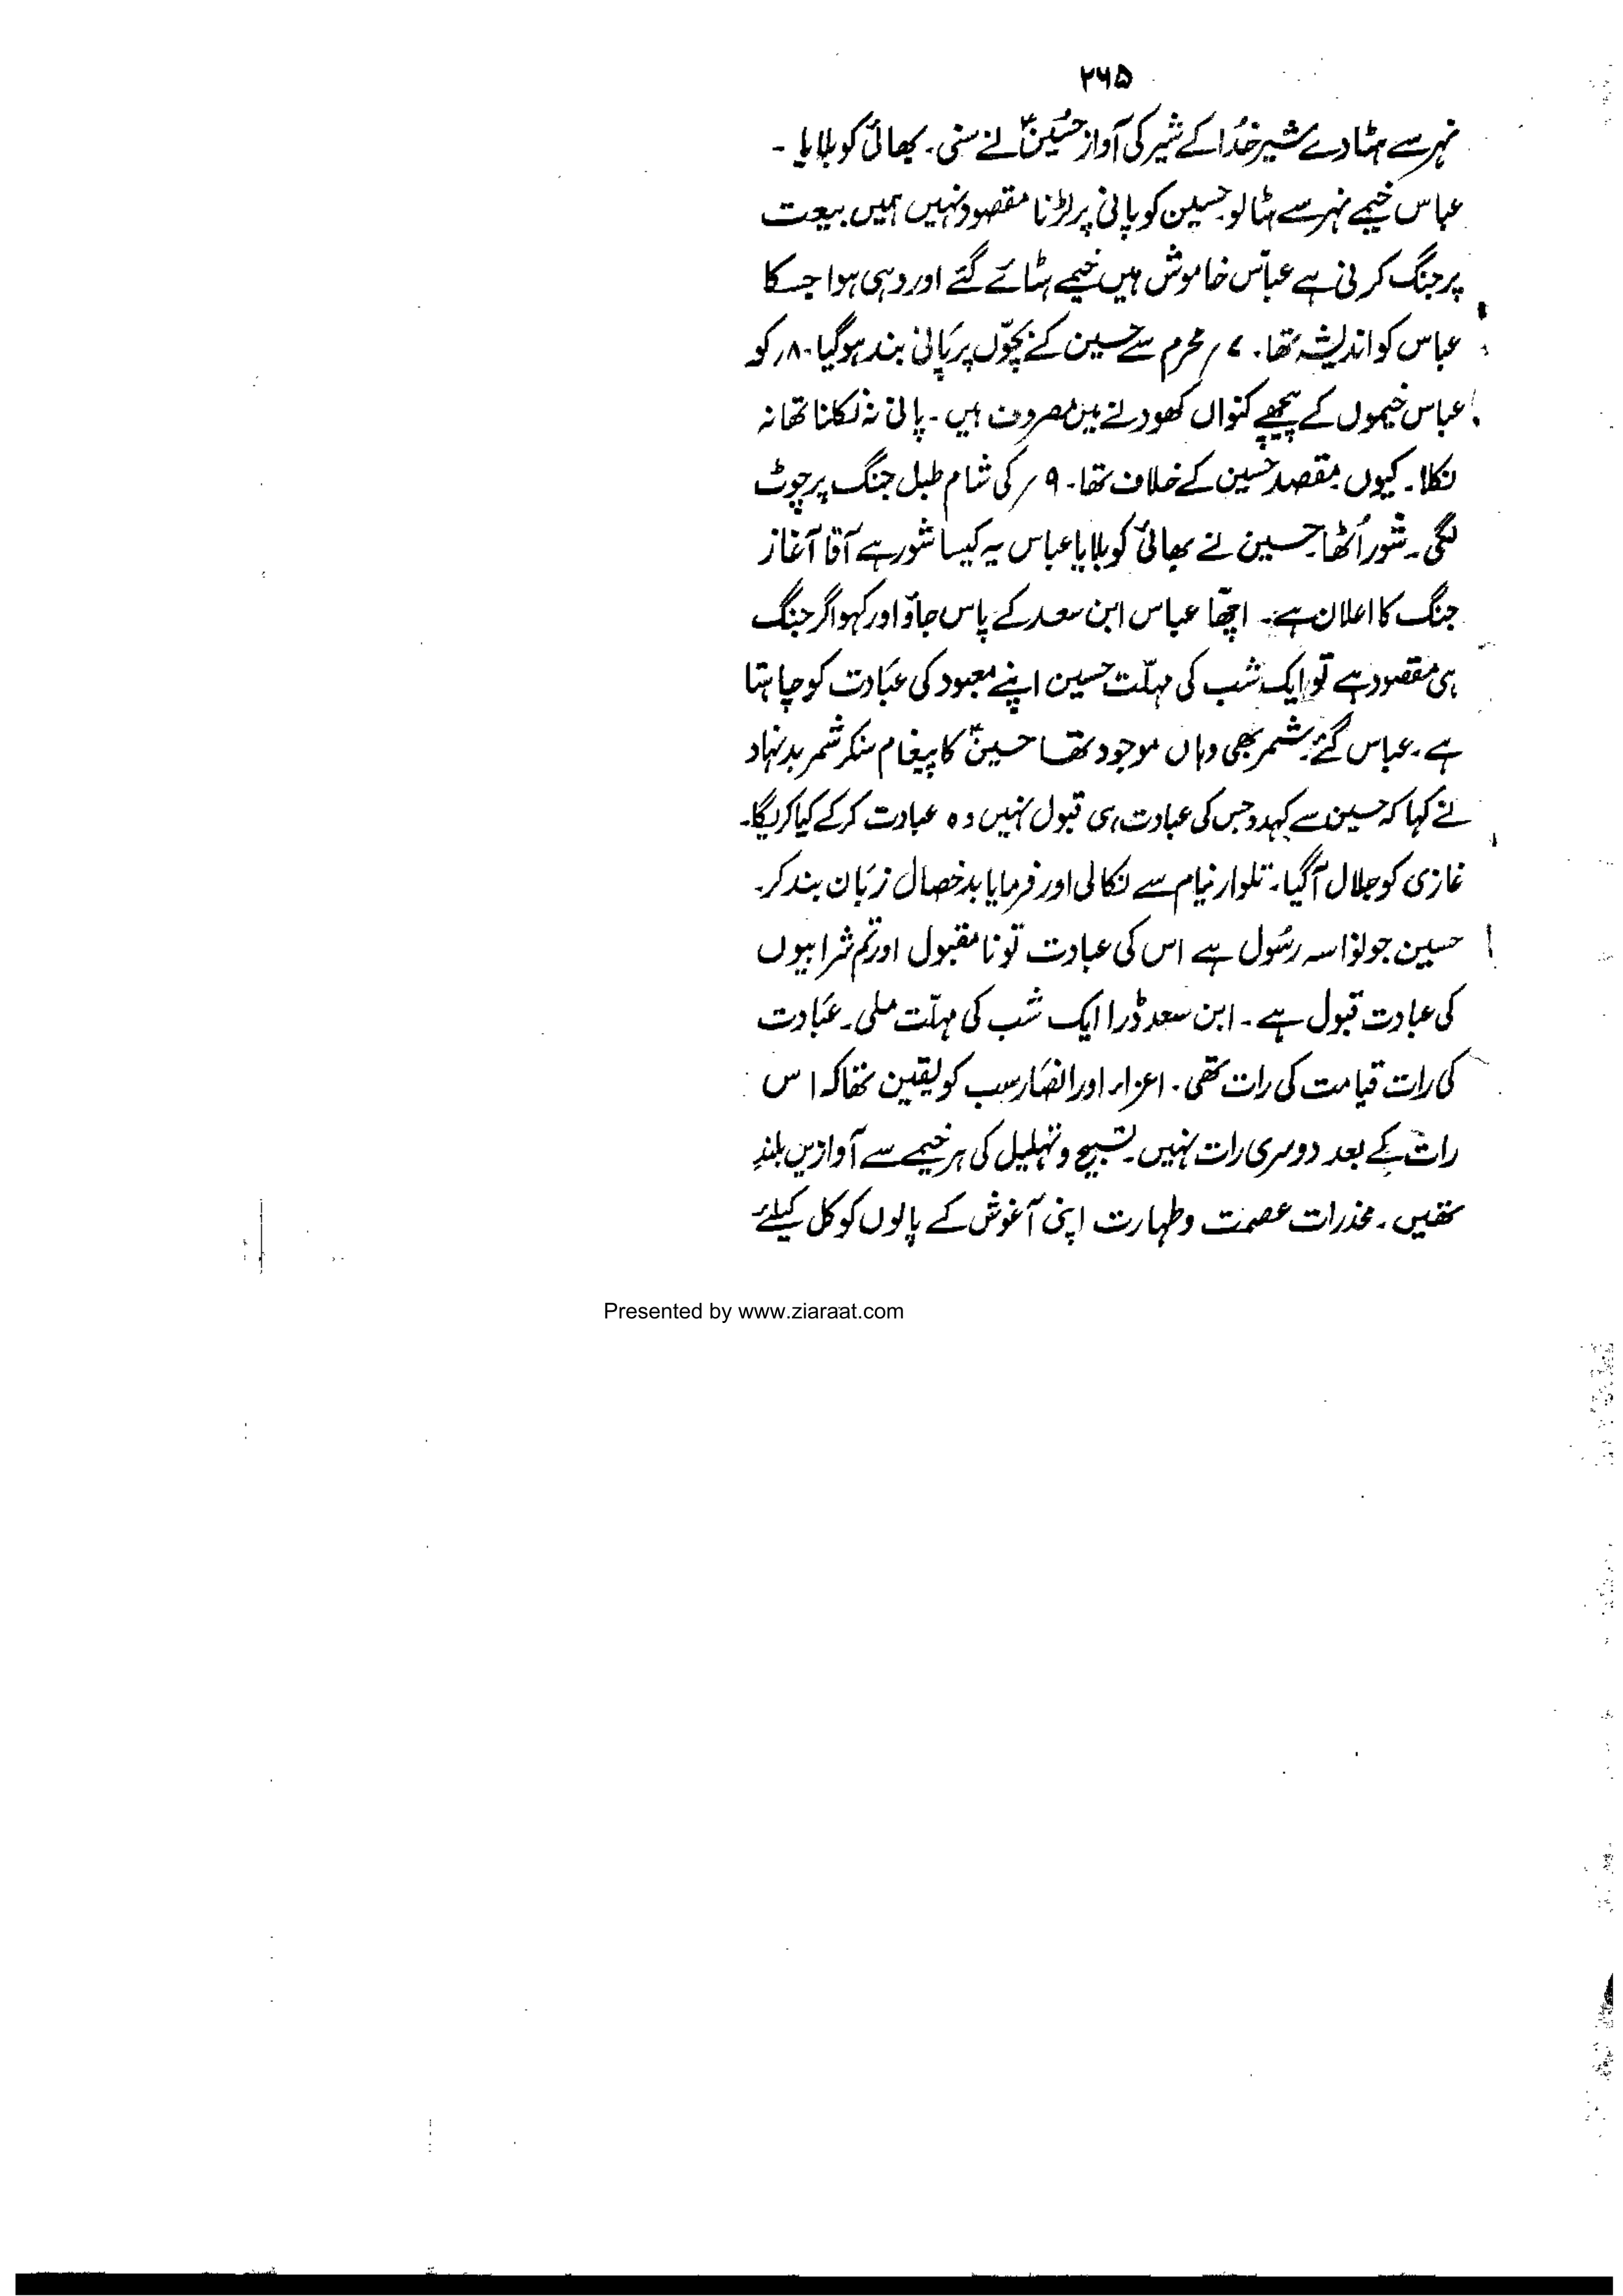 ۲۶۵
نہر سے ہٹا دے شیر خدُا کے شیر کی آواز حسُینؑ نے سنی۔ بھائی کو بلایا۔
عباس خیمے نہر سے ہٹالو حسین کو پانی پر لڑنا مقصود نہیں ہمیں بیعت
پر جنگ کرنی ہے عباّس خاموش ہیں خیمے ہٹائے گئے اور وہی ہوا جسکا
عباس کو اندیشہ تھا۔ ۷/ محرم سے حسین کے بچّوں پر پانی بند ہوگیا۔ ۸/ کو
عباس خیموں کے پیچھے کنواں کھودنے میں مصروف ہیں۔ پانی نہ نکلنا تھا نہ
نکلا۔ کیوں مقصد حسین کے خلاف تھا۔ ۹/ کی شام طبل جنگ پر چوٹ
لگی۔ شور اُٹھا حسین نے بھائی کو بلایا عباس یہ کیسا شور ہے آقا آغاز
جنگ کا اعلان ہے۔ اچھّا عباس ابن سعد کے پاس جاؤ اور کہو اگر جنگ
ہی مقصود ہے تو ایک شب کی مہلّت حسین اپنے معبود کی عبَادت کو چاہتا
ہے۔ عباس گئے۔ شمر بھی وہاں موجود تھا حسینؑ کا پیغام سنکر شمر بدنہاد
نے کہا کہ حسین سے کہدو جس کی عبادت ہی قبول نہیں وہ عبادت کرکے کیا کریگا۔
غازی کو جلال آگیا۔ تلوار نیام سے نکالی اور فرمایا بدخصال زبَان بند کر۔
حسین جو نواسہ رسُول ہے اس کی عبادت تو نامقبول اور تم شرابیوں
کی عبادت قبول ہے۔ ابن سعد ڈرا ایک شب کی مہلّت ملی۔ عبَادت
کی رات قیامت کی رات تھی۔ اعزاء اور انصَار سب کو یقین تھا کہ اس
رات کے بعد دوسری رات نہیں۔ تسبیح و تہلیل کی ہر خیمے سے آوازیں بلند
تھیں۔ مخذرات عصمت و طہارت اپنی آغوش کے پالوں کو کل کیلئے
Presented by www.ziaraat.com